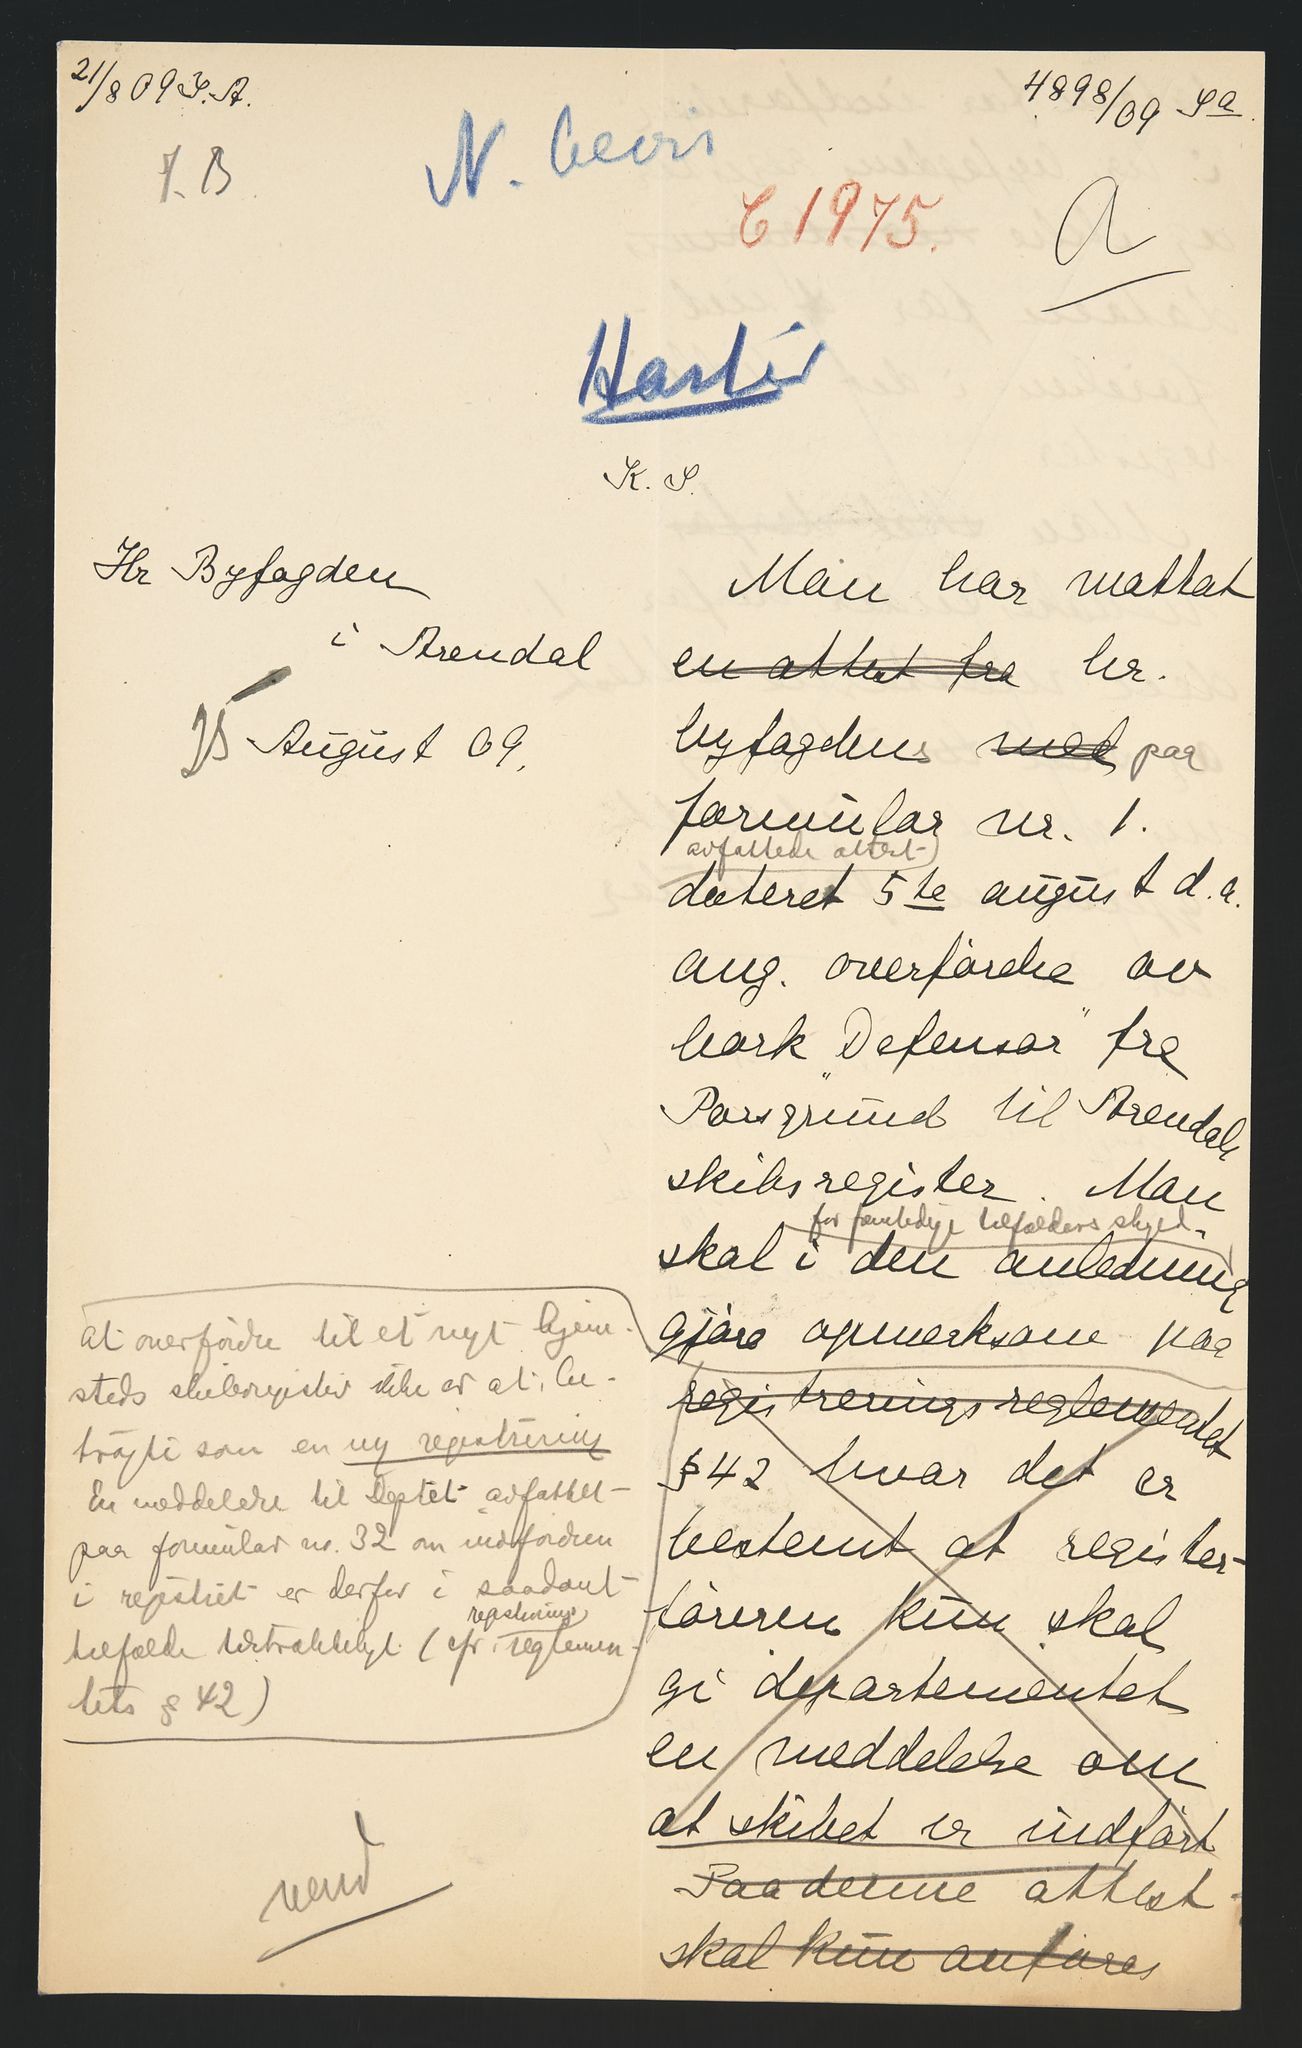 21/8 09 S.A.
4898/09 Sa.
J. B
N. bevis
C 1975.
a
Haster
K. S.
Hr Byfogden
i Arendal
25 August 09.
Man har mottat
en attest fra hr.
byfogdens med paa
formular nr. 1.
avfattede attest
dateret 5te august d.a.
ang. overförelse av
bark "Defensor" fra
Porsgrund til Arendals
skibsregister. Man
for fremtidige tilfælders skyld
skal i den anledning
gjöre opmerksom paa
registreringsreglementet
§ 42 hvor det er
bestemt at register-
föreren kun skal
gi departementet
en meddelelse om
at skibet er indfört
Paa denne attest
skal kun anföres
at overförelse til et nyt hjem-
steds skibsregister ikke er at be-
tragte som en ny registrering
En meddelelse til Deptet avfattet
paa formular no. 32 om indförelsen
i registret er derfor i saadant
registrerings
tilfælde tilstrækkeligt (cfr. reglemen-
tets § 42)
vend